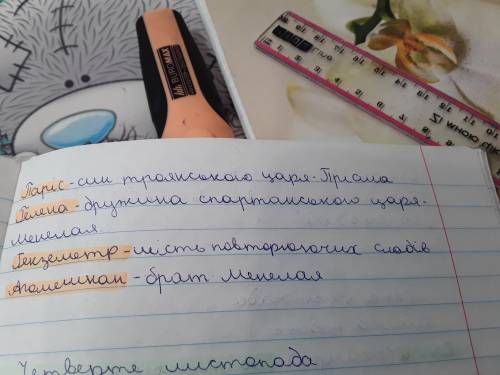 BUROMAX
Паріс - син троянського царя - Пріама
Гелена - дружина спартанського царя -
Менелая.
Гекземетр - шість повторюючих слодів
Агамемнон - брат Менелая
Четверте листопада